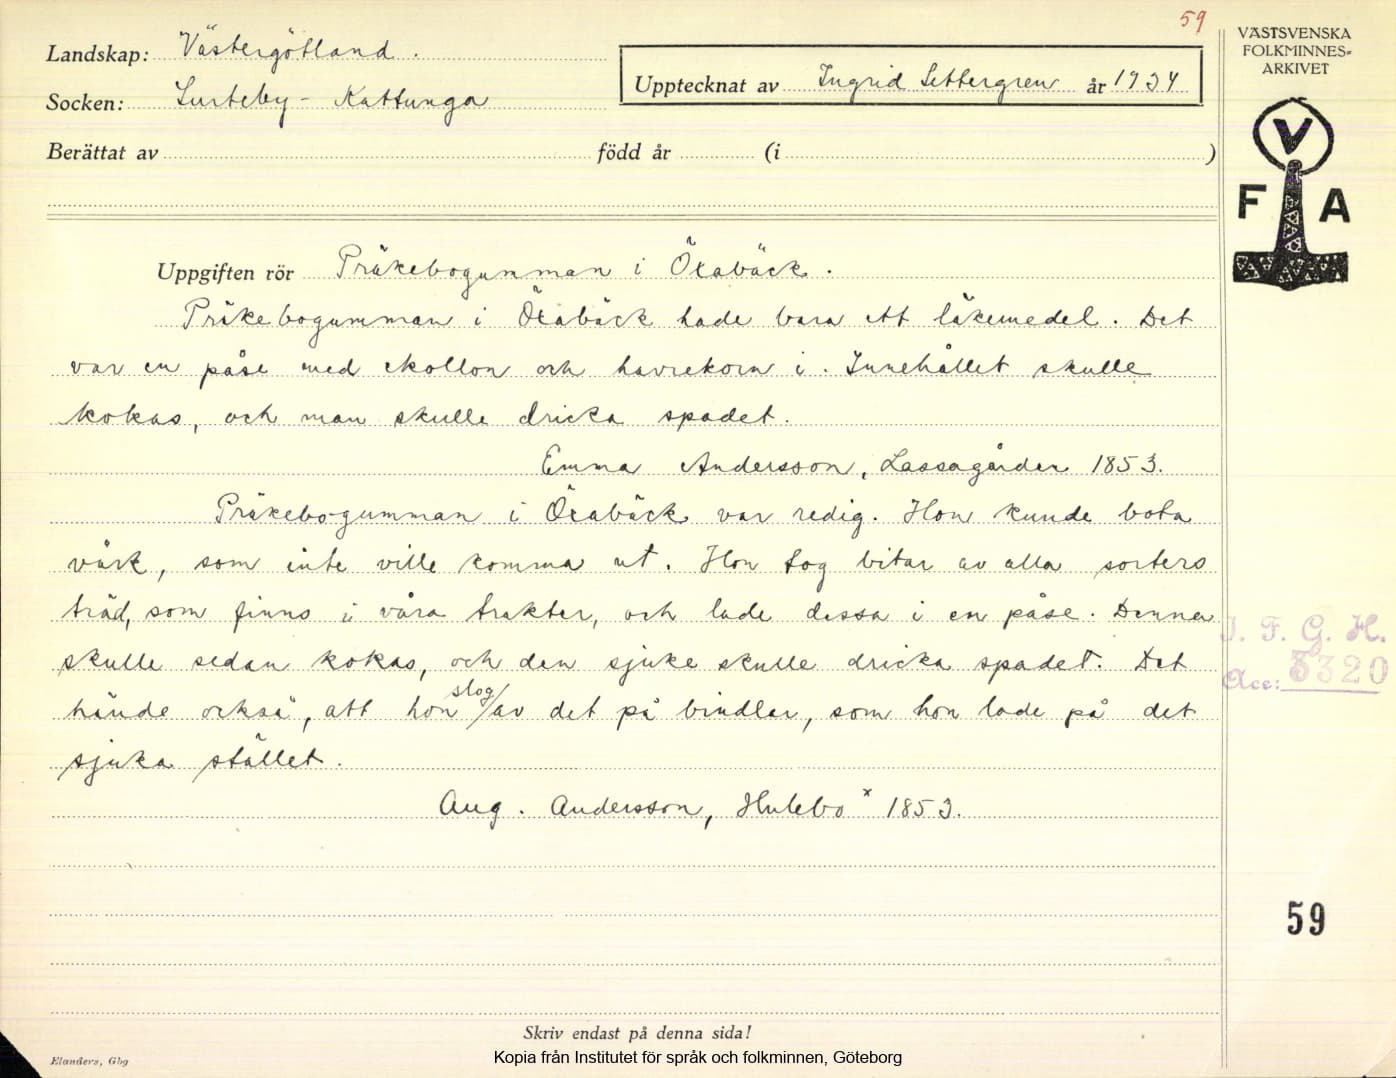 59
VÄSTSVENSKA
FOLKMINNES=
ARKIVET
Landskap: Västergötland.
Upptecknat av Ingrid Settergren år 1934
Socken: Surteby - Kattunga
Berättat av född år (i )
V
F A
Uppgiften rör Präkebogumman i Öxabäck.
Präkebogumman i Öxabäck hade bara ett läkemedel. Det
var en påse med ekollon och havrekorn i. Innehållet skulle
kokas, och man skulle dricka spadet.
Emma Andersson, Lassagården 1853.
Präkebo-gumman i Öxabäck var redig. Hon kunde bota
värk, som inte ville komma ut. Hon tog bitar av alla sorters
träd, som finns i våra trakter, och lade dessa i en påse. Denna
skulle sedan kokas, och den sjuke skulle dricka spadet. Det
hände också, att hon slog av det på bindlar, som hon lade på det
sjuka stället.
Aug. Andersson, Hulebo x 1853.
I. F. G. H.
Acc: 3320
59
Skriv endast på denna sida!
Elanders, Gbg
Kopia från Institutet för språk och folkminnen, Göteborg